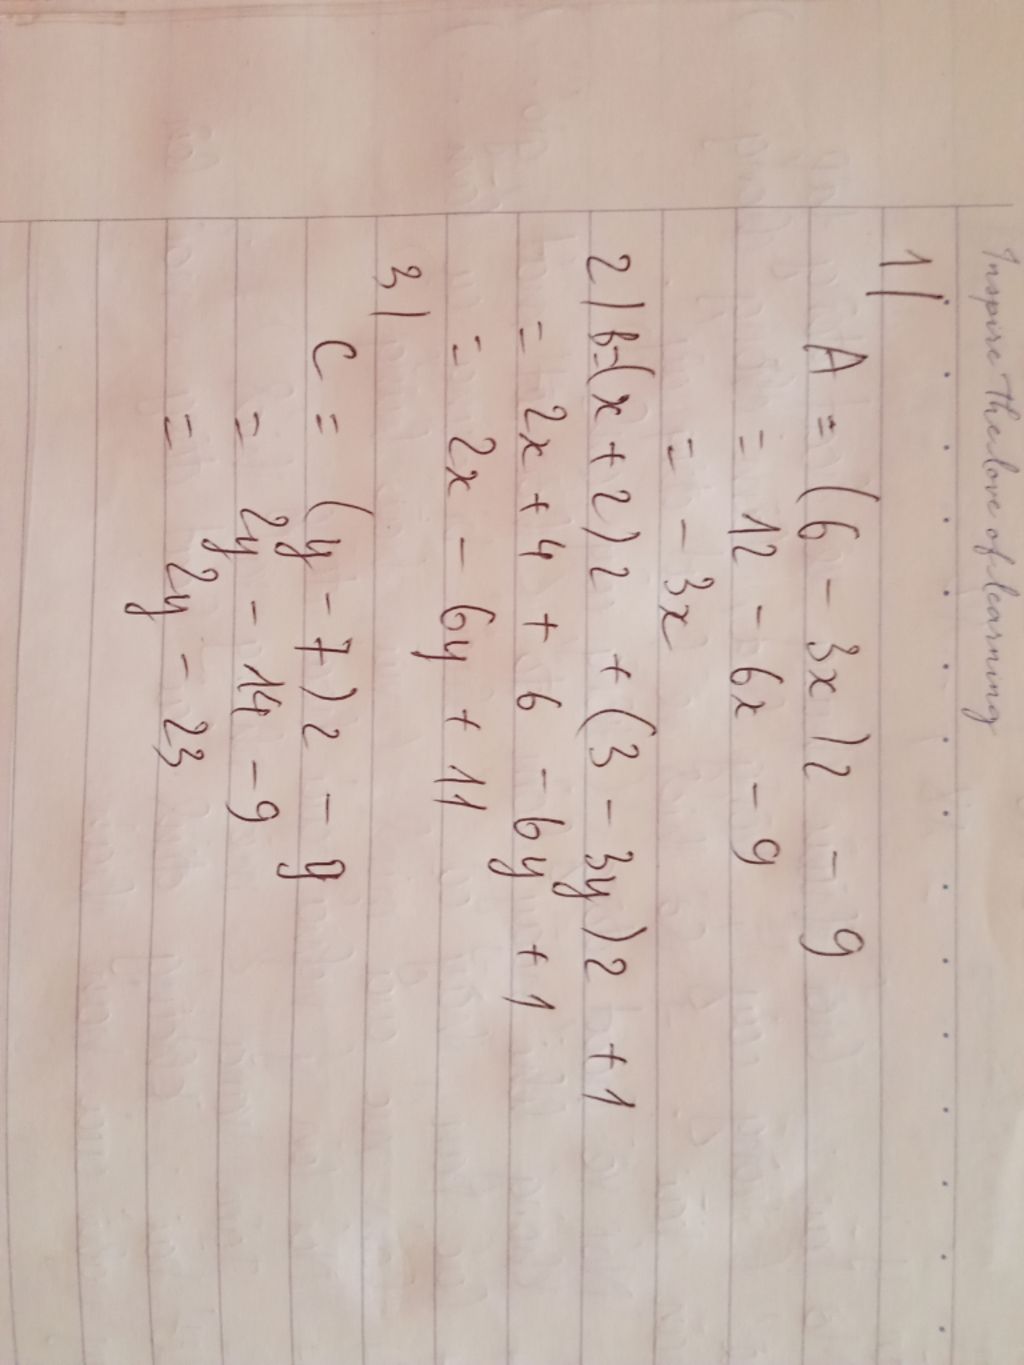 Inspire the love of learning
1)
A = (6 - 3x)2 - 9
= 12 - 6x - 9
= - 3x
2) B=(x+2)2 + (3 - 3y)2 +1
= 2x + 4 + 6 - 6y +1
= 2x - 6y + 11
3)
C = (y - 7)2 - 9
= 2y - 14 - 9
= 2y - 23